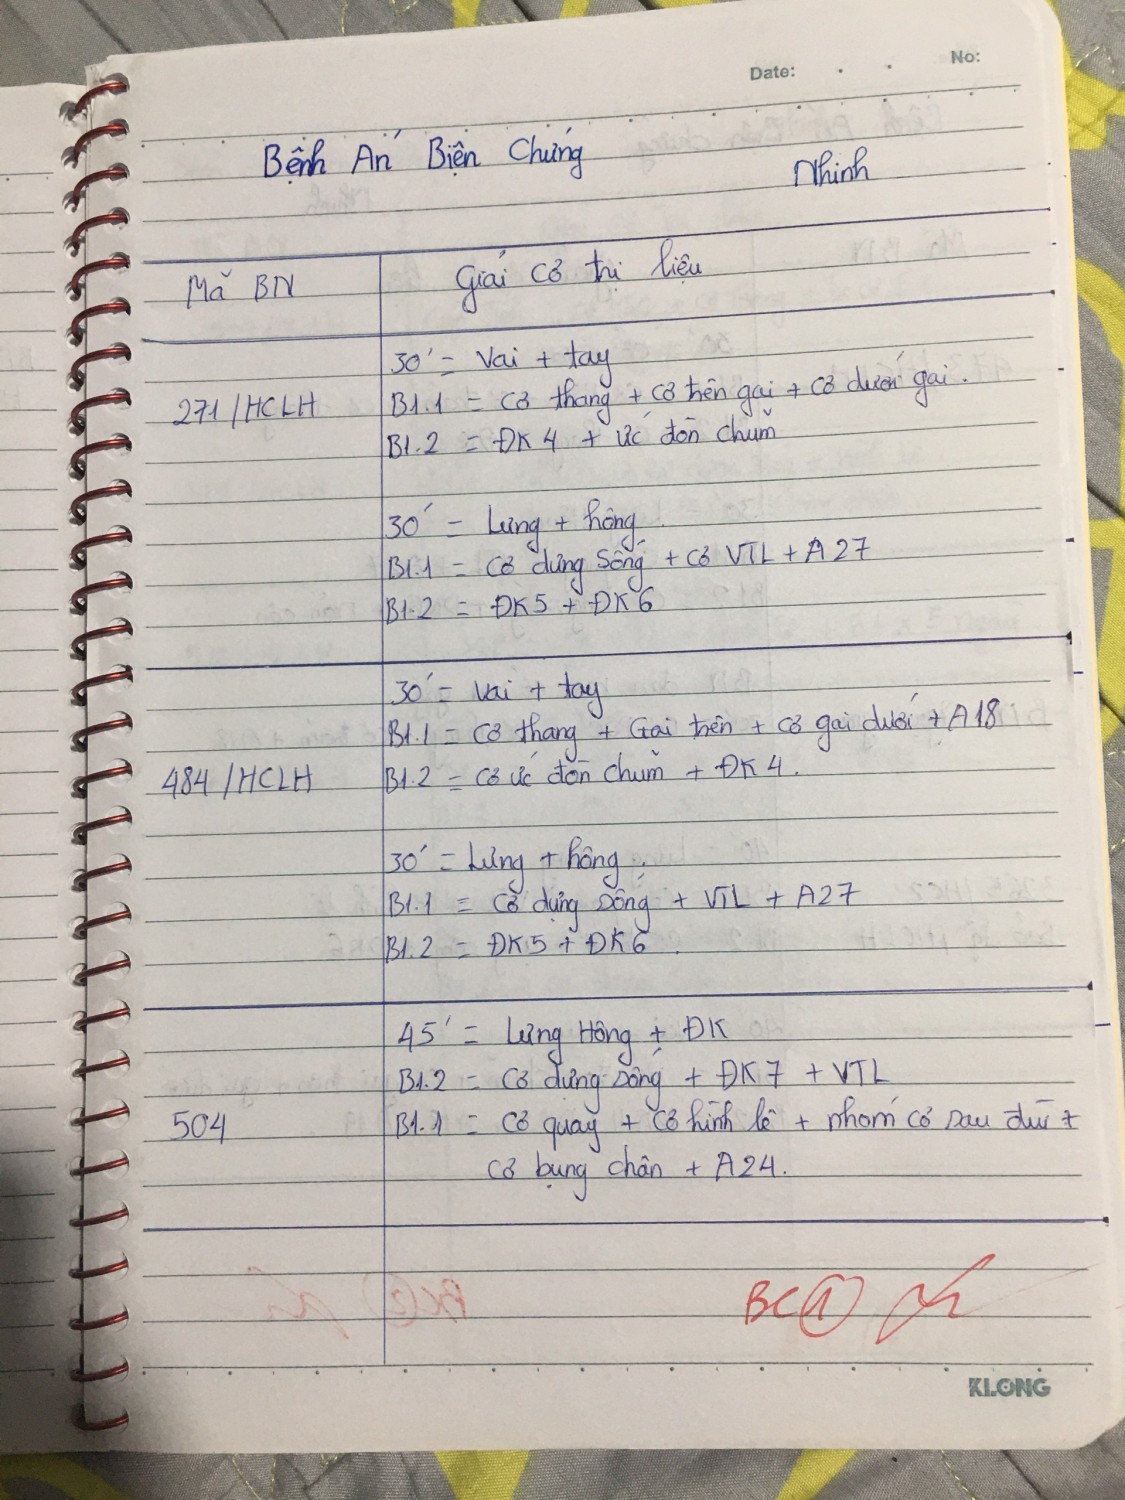 Date: . . No:
Bệnh Án Biện Chứng
Nhinh
Mã BN
Giải cơ trị liệu
30' = Vai + tay
271/HCLH
B1.1 = Cơ thang + Cơ trên gai + Cơ dưới gai.
B1.2 = ĐK4 + ức đòn chũm
30' = Lưng + hông.
B1.1 = Cơ dựng sống + cơ VTL + A27
B1.2 = ĐK5 + ĐK6
30' = Vai + tay
B1.1 = Cơ thang + Gai trên + Cơ gai dưới + A18
484/HCLH
B1.2 = Cơ ức đòn chũm + ĐK4.
30' = Lưng + hông.
B1.1 = Cơ dựng sống + VTL + A27
B1.2 = ĐK5 + ĐK6.
45' = Lưng Hông + ĐK
B1.2 = Cơ dựng sống + ĐK7 + VTL
504
B1.1 = Cơ quay + Cơ hình lê + nhóm cơ sau đùi +
cơ bụng chân + A24.
BC(1)
KLONG